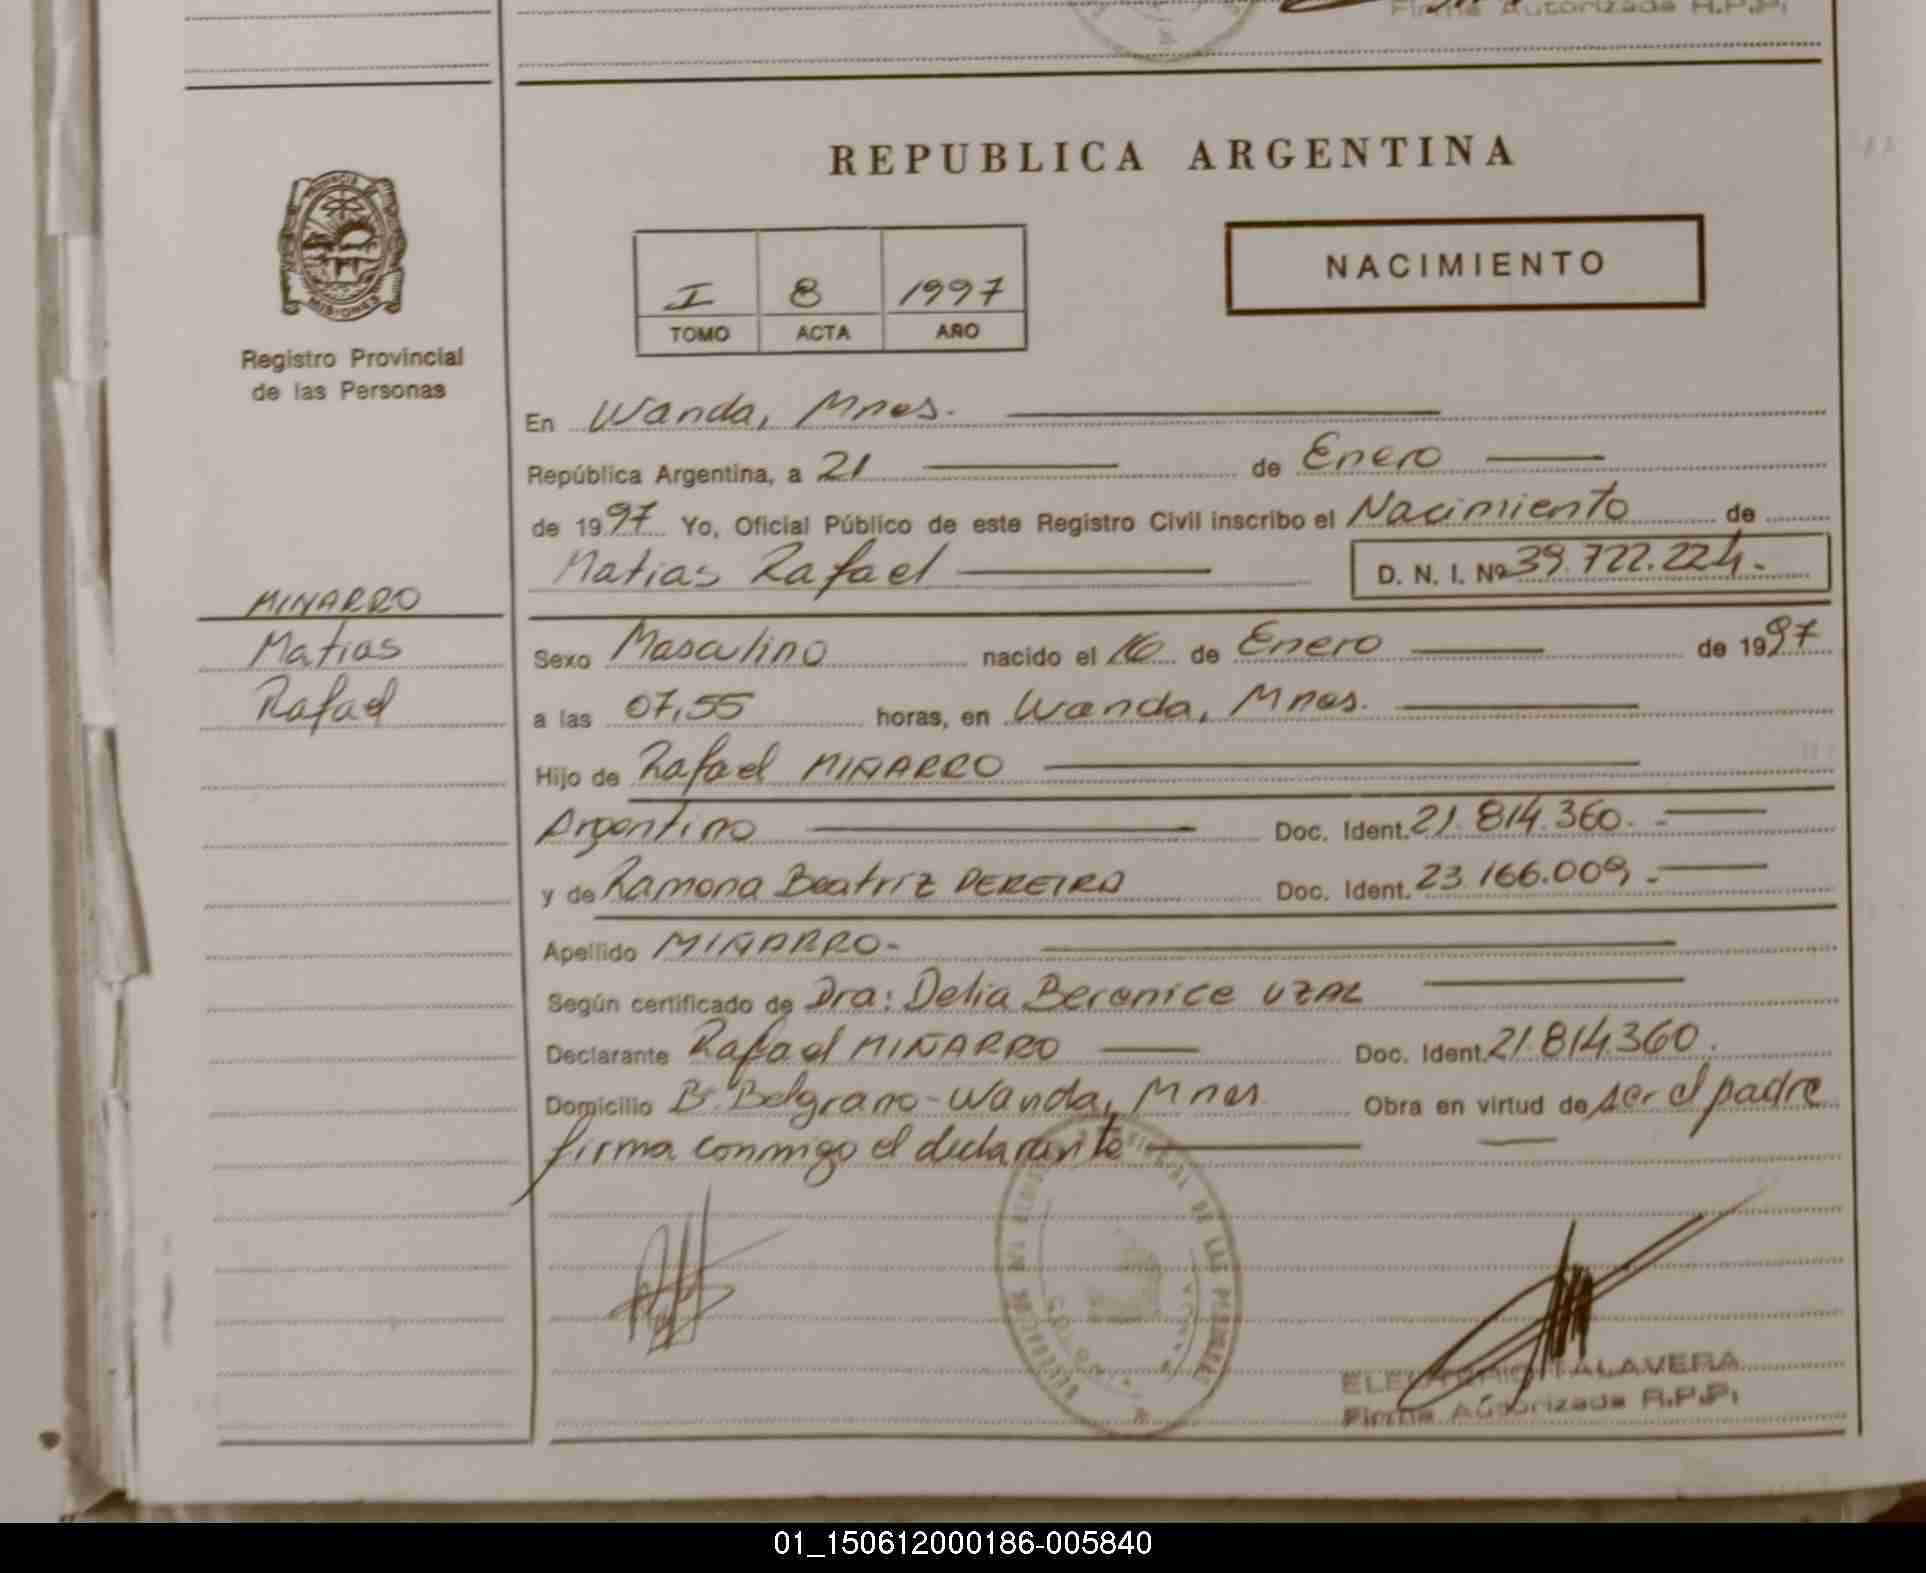 Firma Autorizada R.P.P.
REPUBLICA ARGENTINA
NACIMIENTO
I 8 1997
TOMO ACTA AÑO
PROVINCIA DE
MISIONES
Registro Provincial
de las Personas
En Wanda, Mnes.
República Argentina, a 21 de Enero
de 1997 Yo, Oficial Público de este Registro Civil inscribo el Nacimiento de
Matias Rafael D. N. I. Nº 39.722.224.-
MIÑARRO
Matias
Rafael
Sexo Masculino nacido el 16 de Enero de 1997
a las 07,55 horas, en Wanda, Mnes.
Hijo de Rafael MIÑARRO
Argentino Doc. Ident. 21.814.360.-
y de Ramona Beatriz PEREIRA Doc. Ident. 23.166.009,-
Apellido MIÑARRO-
Según certificado de Dra: Delia Berenice UZAL
Declarante Rafael MIÑARRO Doc. Ident. 21.814.360.
Domicilio Bº Belgrano-Wanda, Mnes Obra en virtud de ser el padre
firma conmigo el declarante
DE LAS PERSONAS
TALAVERA
Firma Autorizada R.P.P.
01_150612000186-005840